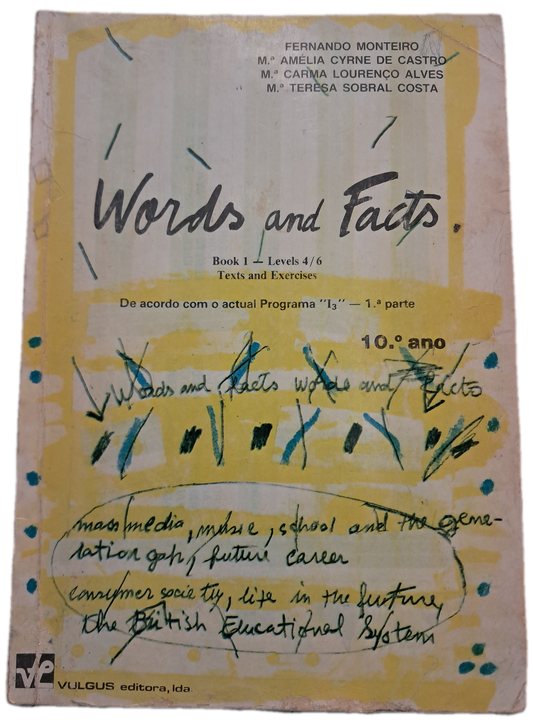 FERNANDO MONTEIRO
M.ª AMÉLIA CYRNE DE CASTRO
M.ª CARMA LOURENÇO ALVES
M.ª TERESA SOBRAL COSTA
Words and Facts.
Book 1 — Levels 4/6
Texts and Exercises
De acordo com o actual Programa "I₃" — 1.ª parte
10.º ano
Words and Facts words and Facts
mass media, music, school and the gene-
ration gap, future career
consumer society, life in the future,
the British Educational System
VULGUS editora, lda.